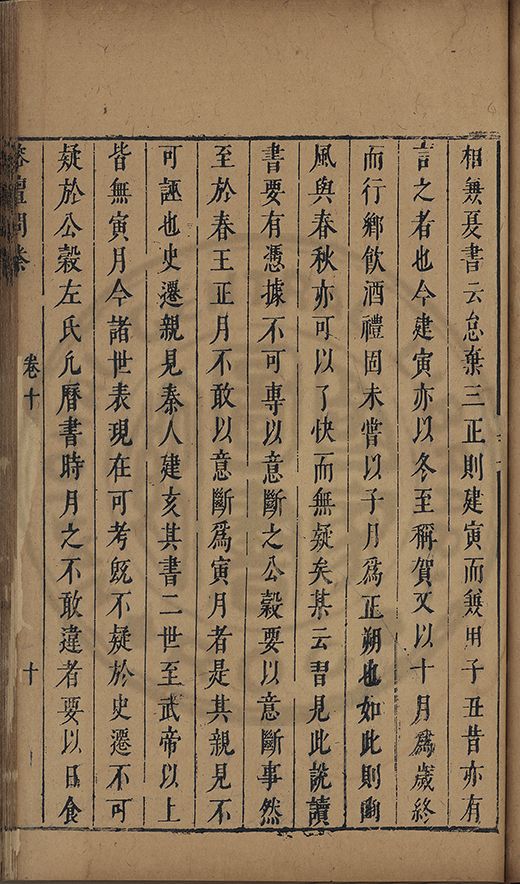 相兼夏書云怠棄三正則建寅而兼用子丑昔亦有
言之者也今建寅亦以冬至稱賀又以十月爲歲終
而行鄉飲酒禮固未嘗以子月爲正朔也如此則豳
風與春秋亦可以了快而無疑矣某云曾見此說讀
書要有憑據不可專以意斷之公穀要以意斷事然
至於春王正月不敢以意斷爲寅月者是其親見不
可誣也史遷親見秦人建亥其書二世至武帝以上
皆無寅月今諸世表現在可考既不疑於史遷不可
疑於公穀左氏凢曆書時月之不敢違者要以日食
卷十
十